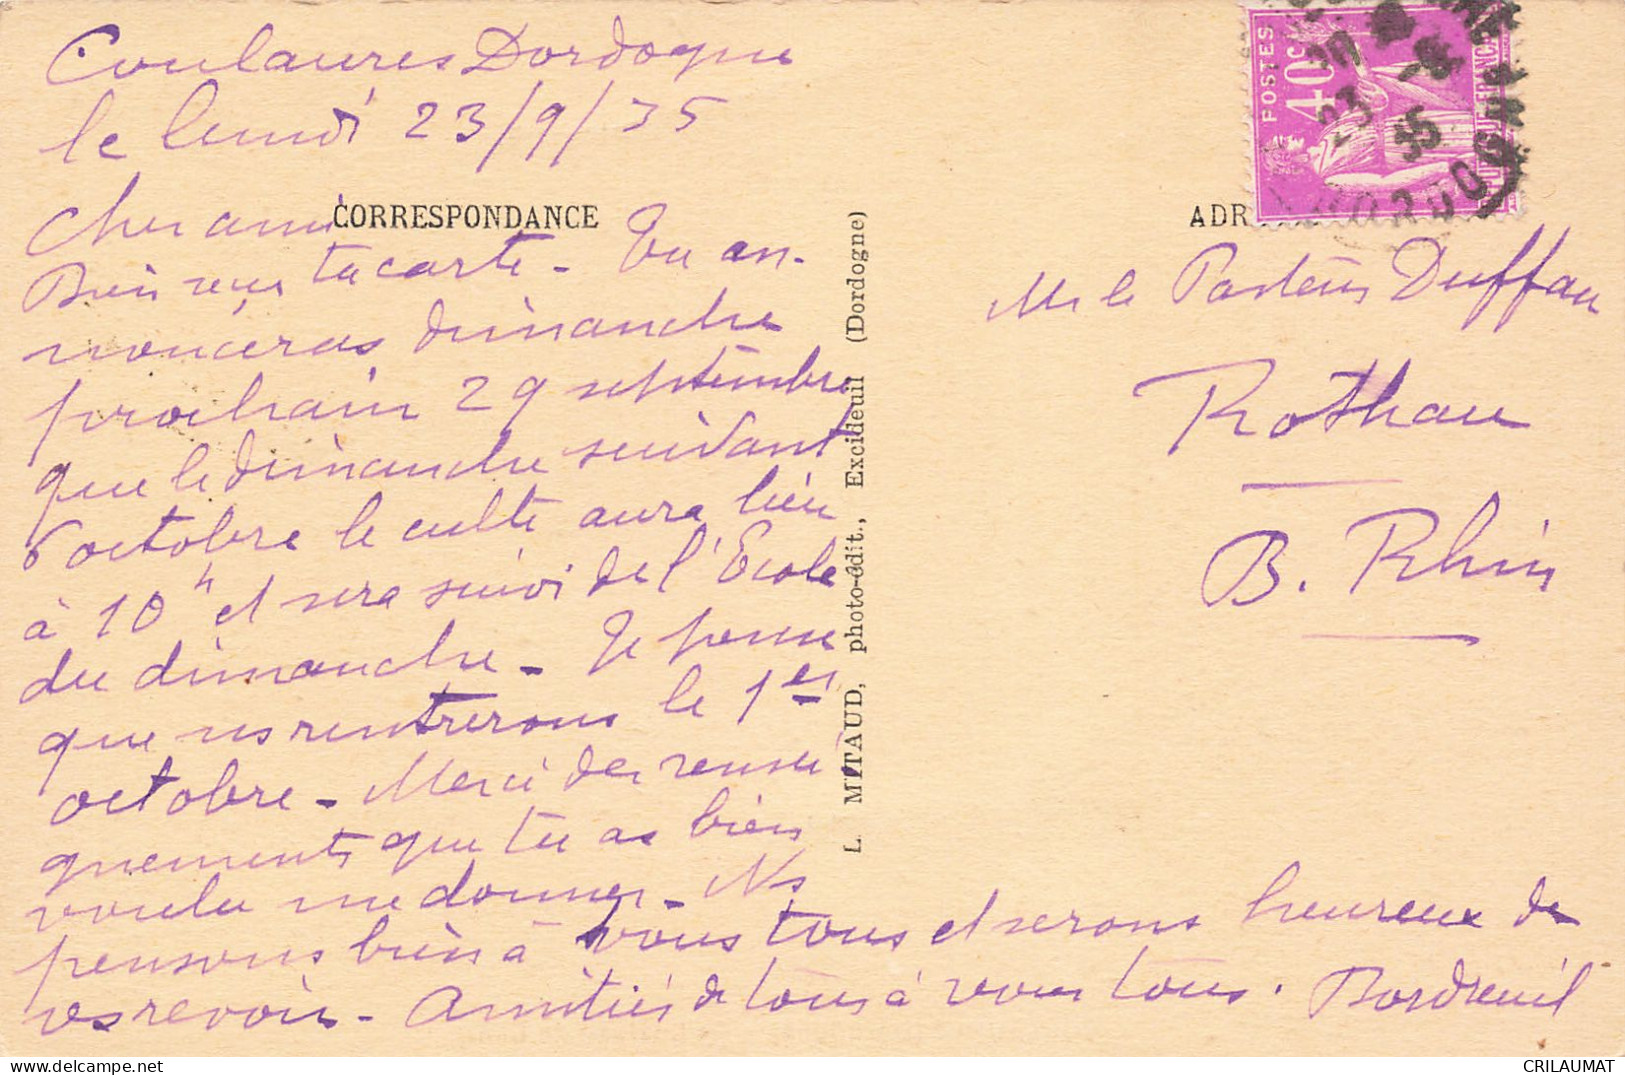 Coulaures Dordogne
le lundi 23/9/35
CORRESPONDANCE
Cher ami
Bien reçu ta carte - Tu an-
nonceras dimanche
prochain 29 septembre
que le dimanche suivant
6 octobre le culte aura lieu
à 10 h et sera suivi de l'Ecole
du dimanche - Je pense
que ns rentrerons le 1er
octobre - Merci des rensei
gnements que tu as bien
voulu me donner - Ns
pensons bien à vous tous et serons heureux de
vs revoir - Amitiés de tous à vous tous. Bordreuil
L. MITAUD, photo-édit., Excideuil (Dordogne)
POSTES
40c
REPUBLIQUE FRANCAISE
23
35
DORDOGNE
ADR
Mr le Pasteur Duffau
Rothau
B. Rhin
CRILAUMAT